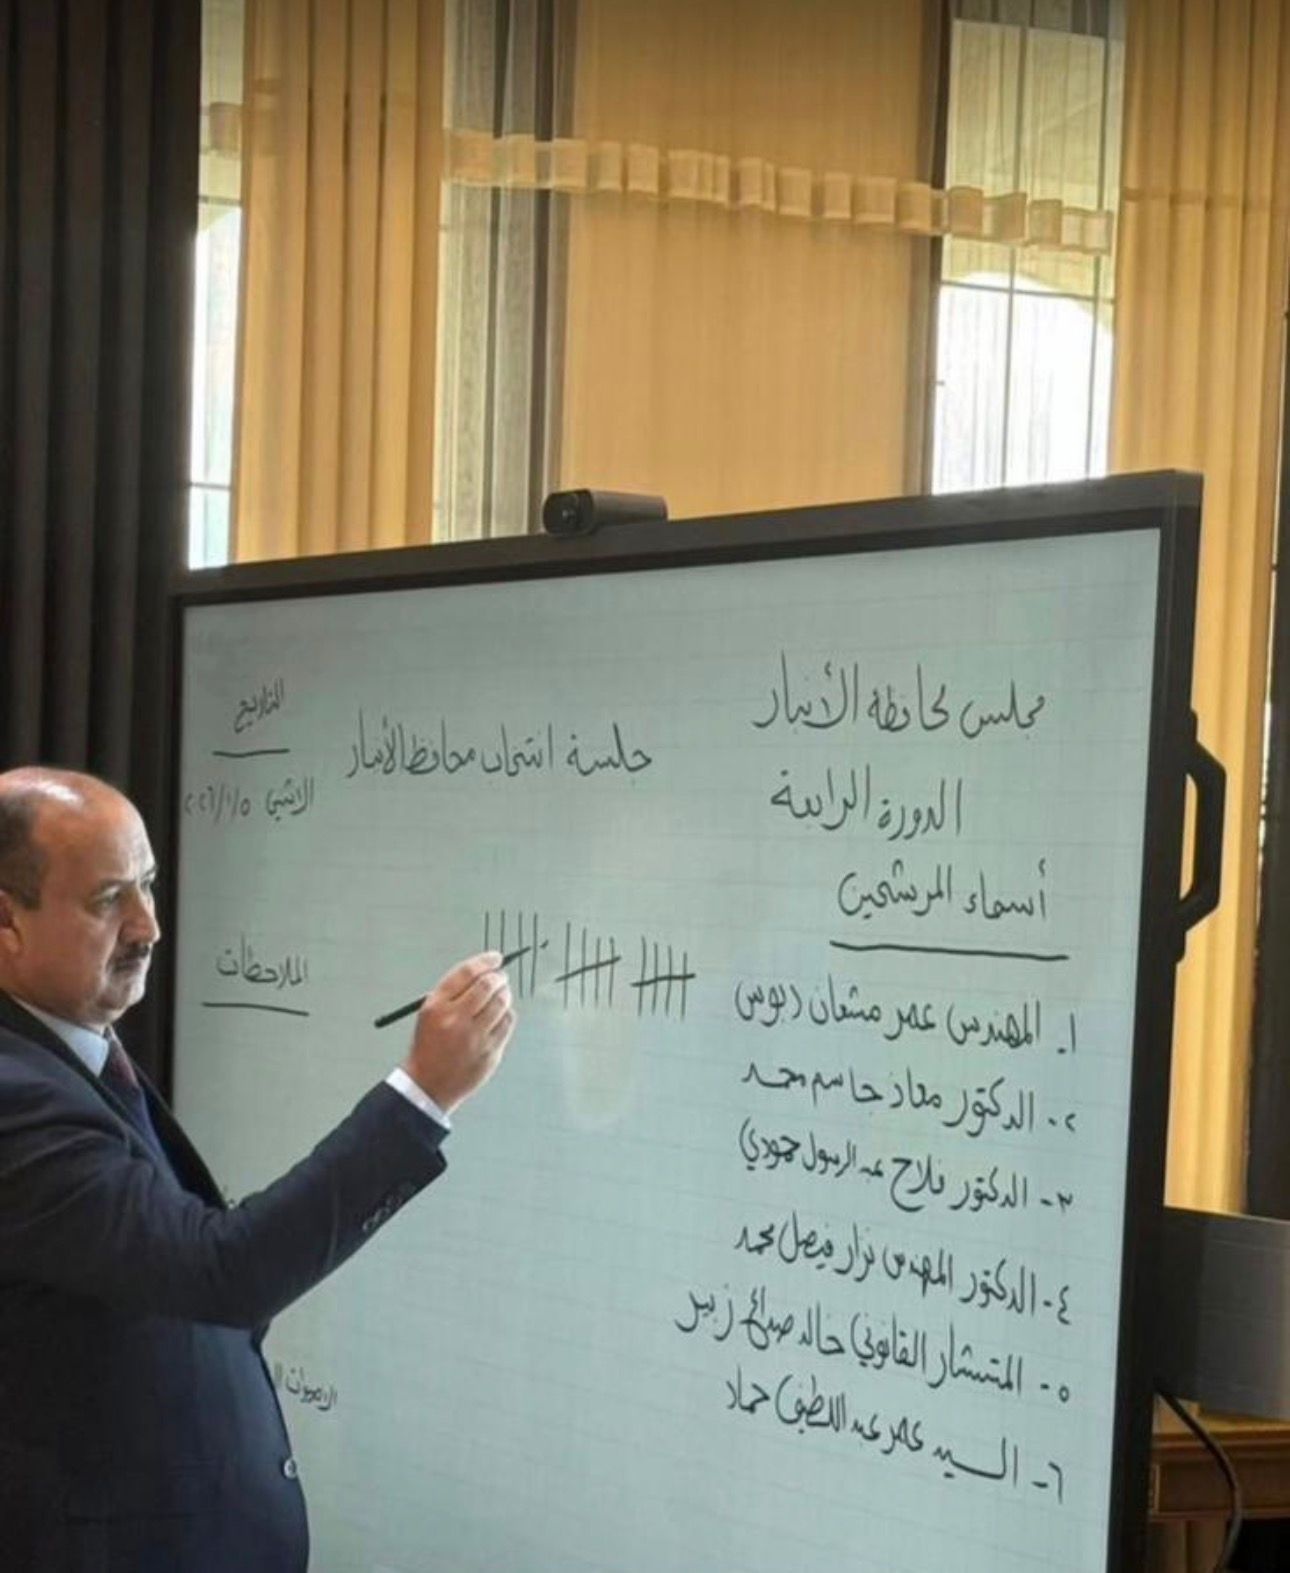 مجلس محافظة الأنبار
الدورة الرابعة
جلسة انتخاب محافظ الأنبار
التاريخ
الاثنين ٢٠٢٦/١/٥
أسماء المرشحين
الملاحظات
١- المهندس عمر مشعان دبوس
٢- الدكتور معاذ جاسم محمد
٣- الدكتور فلاح عبد الرسول حمودي
٤- الدكتور المهندس نزار فيصل محمد
٥- المستشار القانوني خالد صالح زبير
٦- السيد عمر عبد اللطيف حماد